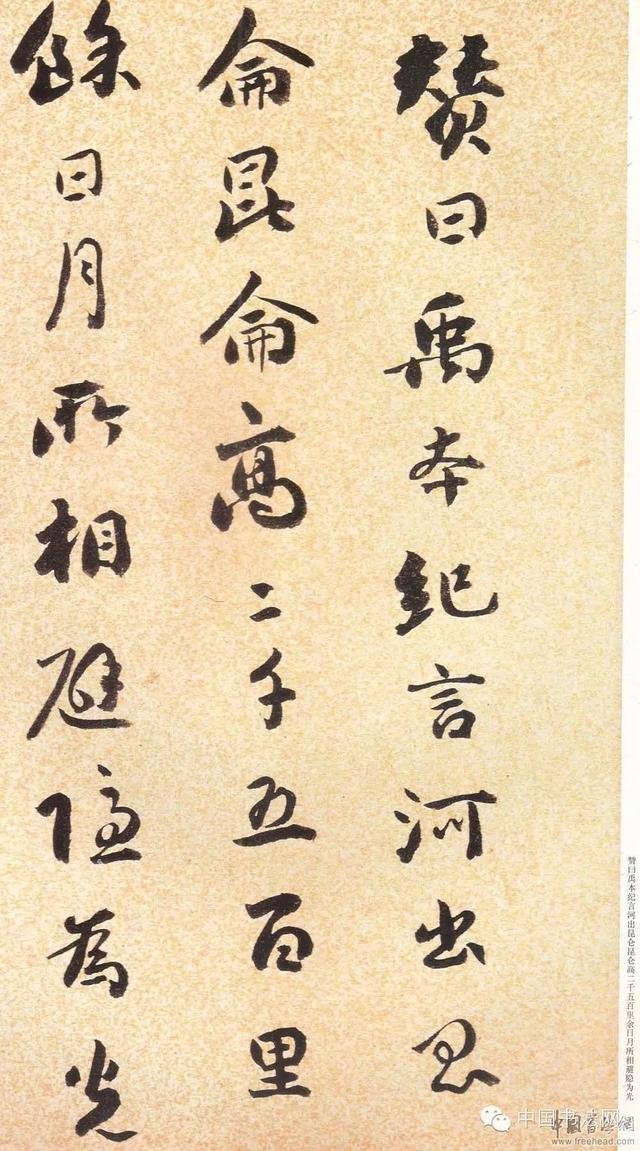 赞曰禹本纪言河出昆
侖昆侖高二千五百里
餘日月所相避隐為光
赞曰禹本纪言河出昆仑昆仑高二千五百里余日月所相避隐为光
中国书法网
中國書法網
www.freehead.com